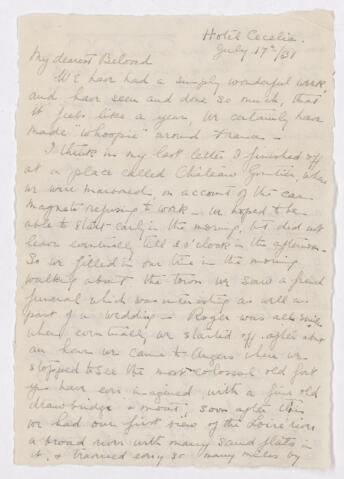 Hotel Cecelia.
July 17th/31
My dearest Beloved
We have had a simply wonderful week,
and have seen and done so much, that
it feels like a year, We certainly have
made "whoopie" around France -
I think in my last letter I finished off
at a place called Château Gontier, when
we were marooned, on account of the car
magneto refusing to work - we hoped to be
able to start early in the morning, but did not
leave eventually till 3 o'clock in the afternoon.
So we filled in our time in the morning
walking about the town we saw a grand
funeral which was interesting as well as
part of a wedding - Roger was all
when eventually we started off. after about
an hour we came to Angers where we
stopped to see the most colossal old fort
you have ever imagined with a fine old
drawbridge & moat, soon after this
we had our first view of the Loire river
a broad river with many sand flats in
it, & every so many miles by